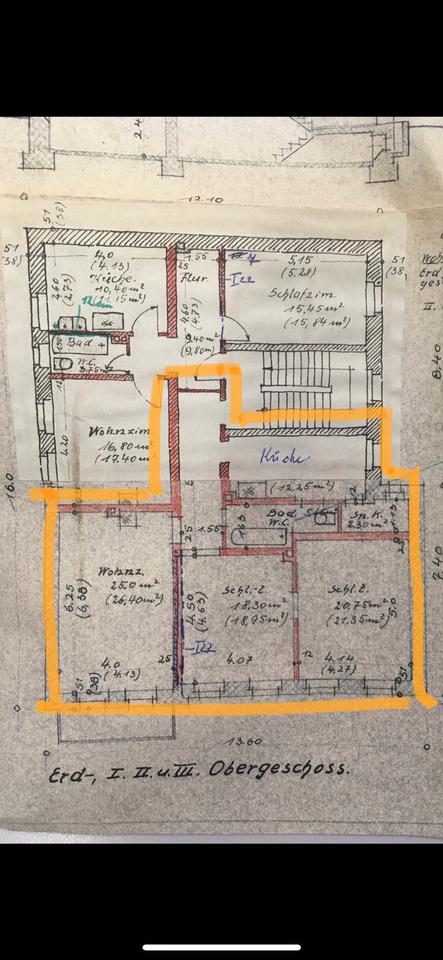 2.4
12.10
51
(38)
51
(38)
51
(38)
4,0
(4.13)
Küche.
10,40 m²
(11,15 m²)
2,60
(2,73)
1.55
25
Flur.
4,60
(4,73)
9,40 m²
(9,80 m²)
I 22
5,15
(5,28)
Schlafzim.
15,45 m²
(15,84 m²)
Bad
W.C.
3.75 m²
12
4.20
Wohnzim
16,80 m²
(17,40 m²)
Küche
(12,25 m²)
16.0
8,40
7.40
Bad
W.C.
Sp.K.
2.30 m²
1.55
25
1.63
Wohnz.
25.0 m²
(26,40 m²)
6,25
(6,38)
4,50
(4,63)
I 22
Schl.-Z.
18,30 m²
(18,95 m²)
Schl.Z.
20,75 m²
(21,35 m²)
5.0
4.0
(4.13)
25
4.07
12
4.14
(4.27)
51
(38)
51
13.60
Erd-, I. II. u. III. Obergeschoss.